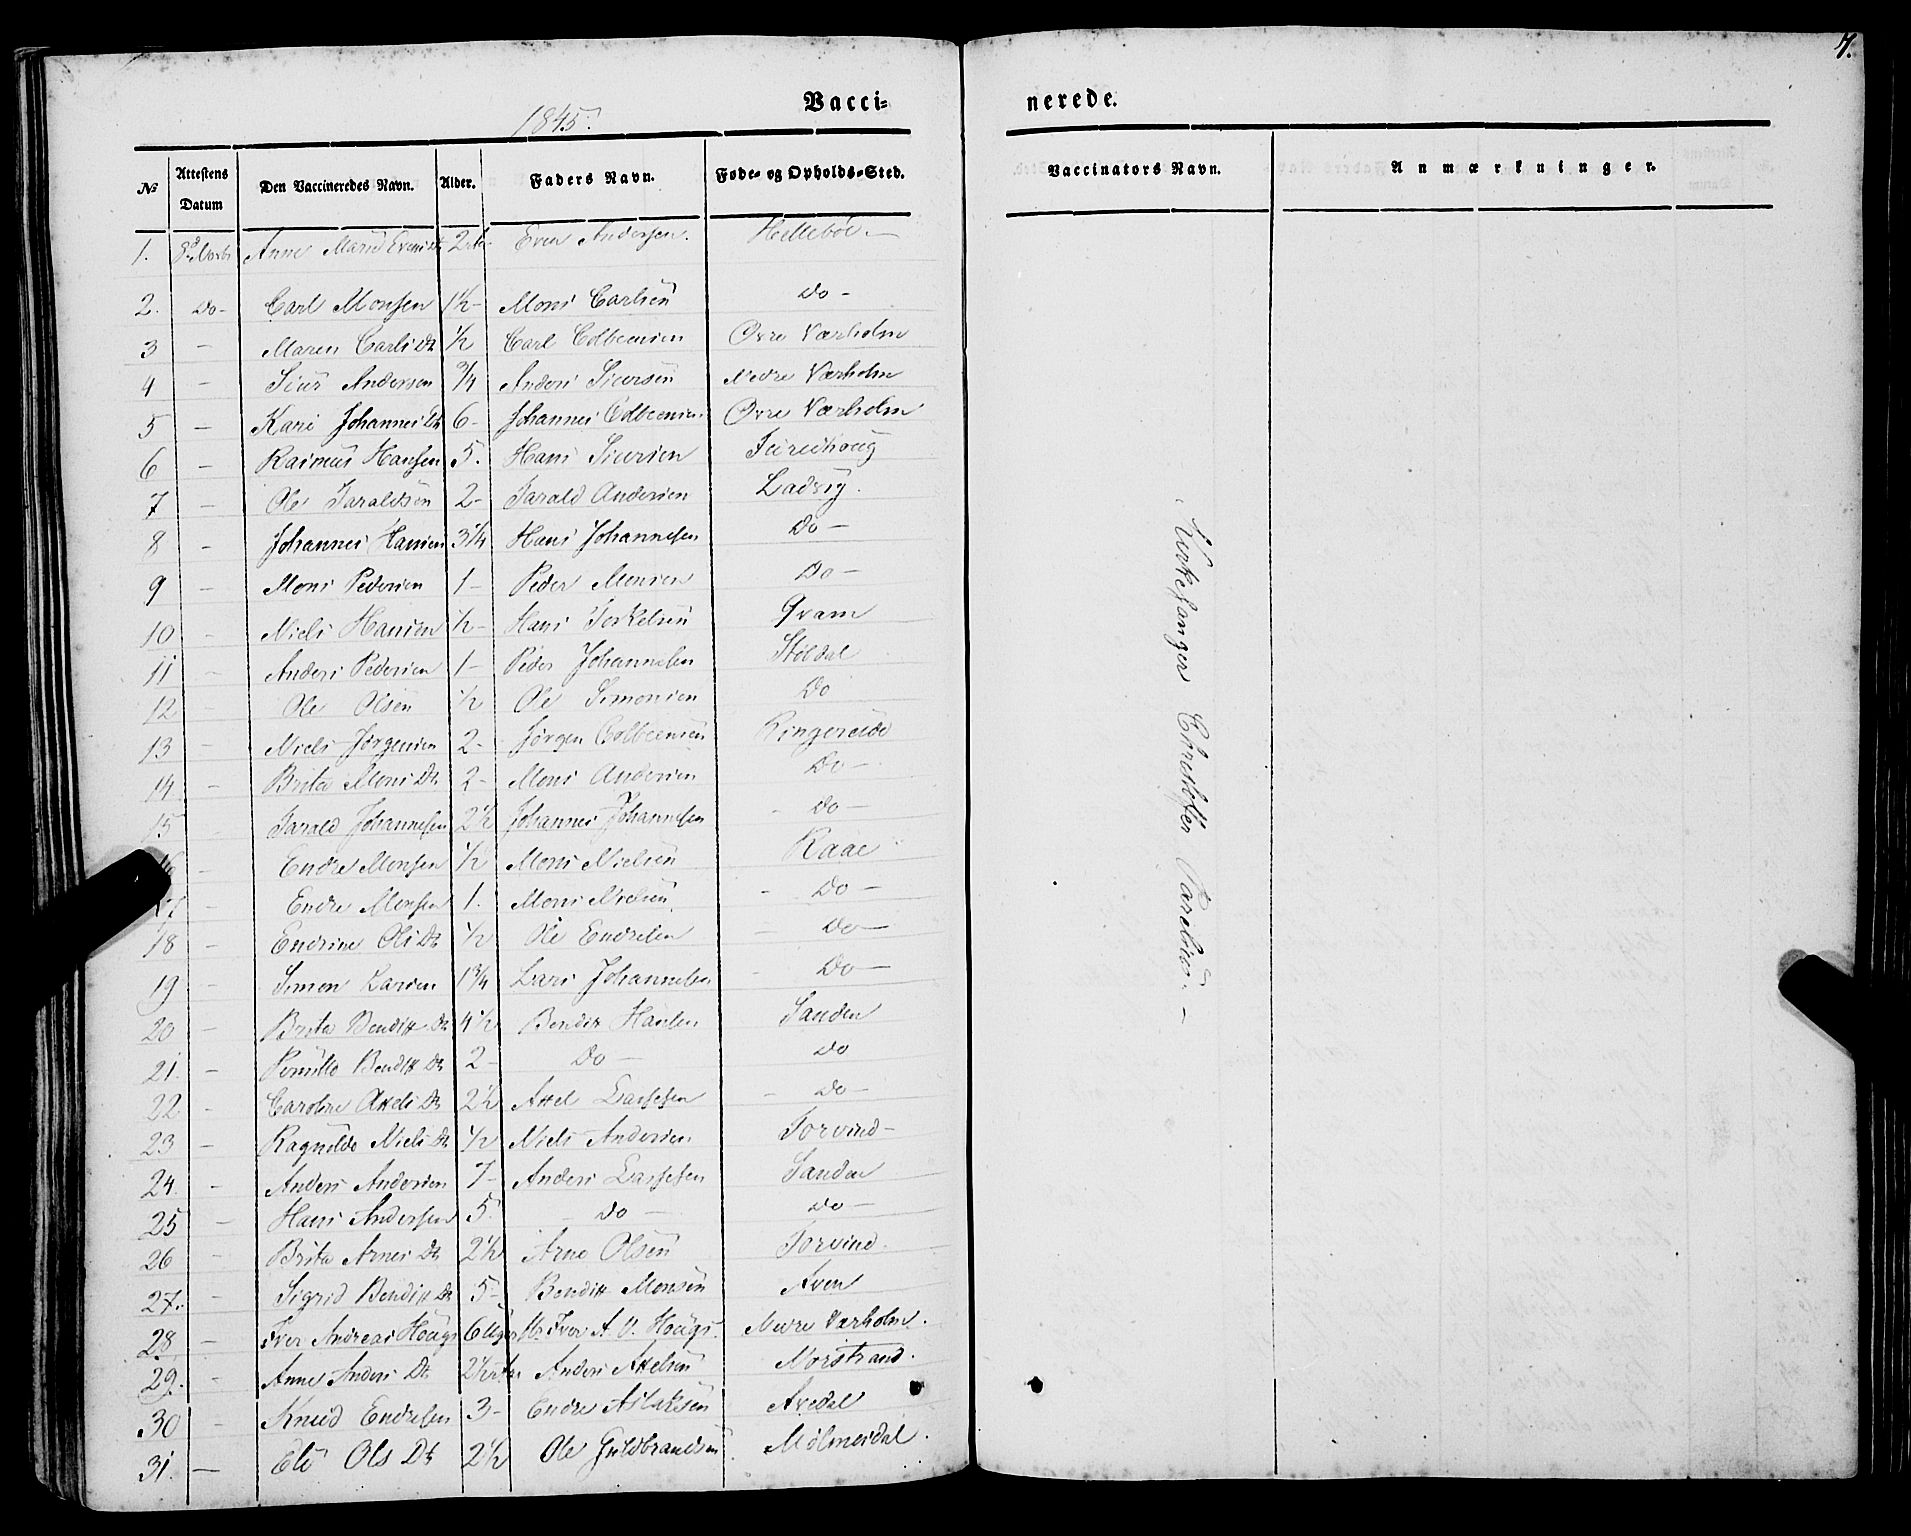 7.
1845.
Vacci-
nerede.
No | Attestens Datum | Den Vaccineredes Navn. | Alder. | Faders Navn. | Føde- og Opholds-Sted. | Vaccinators Navn. | Anmærkninger.
1. | Anne Marie Evens Dt | 2 Aar | Even Andersen. | Hellebøe
2. Do- | Carl Monsen | 1½- | Mons Carlsen | Do-
3 - | Maren Carls Dt | ½ | Carl Colbeensen | Øvre Værholm
4 - | Siur Andersen | ¾ | Anders Siursen | Nedre Værholm
5 - | Kari Johannes Dt | 6- | Johannes Colbeensen | Øvre Værholm
6 - | Rasmus Hansen | 5. | Hans Siursen
7 - | Ole Taraldsen | 2- | Tarald Andersen | Ladvig.
8 - | Johannes Hansen | 3¼ | Hans Johannesen | Do-
9 - | Mons Pedersen | 1- | Peder Monsen | Do-
10 - | Niels Hansen | ½- | Hans Torkelsen | Qvam
11 - | Anders Pedersen | 1- | Peder Johannesen | Støldal
12 - | Ole Olsen | ½ | Ole Simonsen | Do
13 - | Niels Jørgensen | 2- | Jørgen Colbeensen | Ringereide
14 - | Brita Mons Dt | 2- | Mons Andersen | Do-
15 | Tarald Johannesen | 2½ | Johannes Johannesen | - Do-
16 - | Endre Monsen | ½ | Mons Nielsen | Raae
17 - | Endre Monsen | 1. | Mons Nielsen | - Do-
18 - | Endrine Ols Dt | ½ | Ole Endresen | - Do-
19 - | Simon Larsen | 1¾ | Lars Johannesen | - Do-
20 - | Brita Bendix Dt | 4½ | Bendix Hansen | Sanden
21. - | Pernille Bendix Dt | 2- | Do- | Do
22 - | Caroline Axels Dt | 2½ | Axel Lassesen | - Do-
23 - | Ragnilde Niels Dt | ½ | Niels Andersen | Torvind-
24. - | Anders Andersen | 7- | Anders Lassesen | Sanden
25 - | Hans Andersen | 5. | - Do- | Do-
26 - | Brita Arnes Dt | 2½ | Arne Olsen | Torvind.
27. - | Sigrid Bendix Dt | 5- | Bendix Monsen
28 - | Iver Andreas Hougs | 6 Uger | Iver A. V. Hougs. | Nedre Værholm.
29. - | Anne Anders Dt | 2½ Aar | Anders Axelsen | Norstrand.
30 - | Knud Endresen | 3- | Endre Aslaksen | Avedal
31. - | Eli Ols Dt | 2½ | Ole Guldbrandsen | Mølmesdal.
Kirkesanger Christoffer